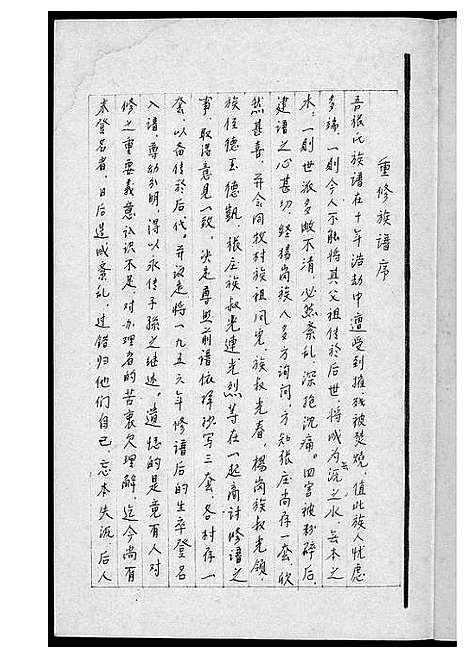 重修族谱序
吾张氏族谱在十年浩劫中遭受到摧残被焚烧，值此族人忧虑
多端，一则今人不能将其父祖传于后世，将成为无源之水，无本之
木，一则世派多散不清，必然紊乱，深抱沉痛。四害被粉碎后，
建谱之心甚切，经杨岗族人多方询问，方知张庄尚存一套，欣
然甚喜，并会同牧村族祖同宪，族叔光春，杨岗族叔光领，
族侄德玉、德凯，张庄族叔光连、光烈等在一起商讨修谱之
事，取得意见一致，决定尊照前谱依样抄写三套，各村存一
套，以备传于后代。并议定将一九五六年修谱后的生卒登名
入谱，尊幼分明，得以永传子孙之继述。遗憾的是竟有人对
修之重要义意认识不足，对办理者的苦衷欠理解，迄今尚有
未登名者，日后造成紊乱，过错归他们自己，忘本失源后人